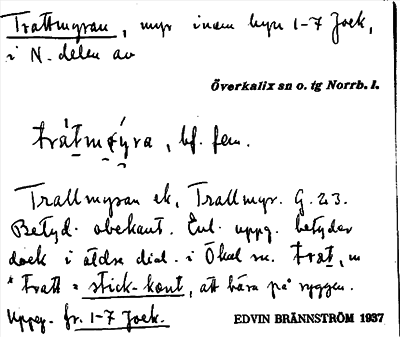 Trattmyran, myr inom byn 1-7 Jock,
i N. delen av
Överkalix sn o. tg Norrb. l.
tràtmýra, bf. fem.
Trattmyran ek, Trattmyr. G. 23.
Betyd. obekant. Enl. uppg. betyder
dock i äldre dial. i Ökal sn. trat, m
"tratt = stick-kont, att bära på ryggen.
Uppg. fr. 1-7 Jock.
EDVIN BRÄNNSTRÖM 1937